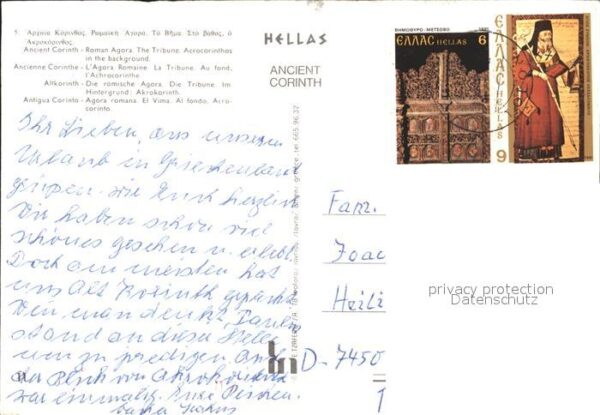 1. Ἀρχαία Κόρινθος. Ρωμαϊκή Ἀγορά. Τό Βῆμα. Στό βάθος, ὁ
Ἀκροκόρινθος.
Ancient Corinth — Roman Agora. The Tribune. Acrocorinthos
in the background.
Ancienne Corinthe — L'Agora Romaine. La Tribune. Au fond,
l'Achrocorinthe.
Altkorinth — Die römische Agora. Die Tribune. Im
Hintergrund: Akrokorinth.
Antigua Corinto — Agora romana. El Vima. Al fondo, Acro-
corinto.
HELLAS
ANCIENT
CORINTH
ΒΗΜΟΘΥΡΟ - ΜΕΤΣΟΒΟ
ΕΛΛΑΣ HELLAS 6
ΕΛΛΑΣ HELLAS
9
Ihr Lieben, aus unserem
Urlaub in Griechenland
grüßen wir Euch herzlich
Wir haben schon viel
schönes gesehen u. erlebt.
Doch am meisten hat
uns Alt Korinth gepackt
Wenn man denkt, Paulus
stand an dieser Stelle
um zu predigen. Und
der Blick von Akrokorinth
war einmalig. Eure
Fam.
Joac
Heili
D-7450
privacy protection
Datenschutz
tel 665.96.37